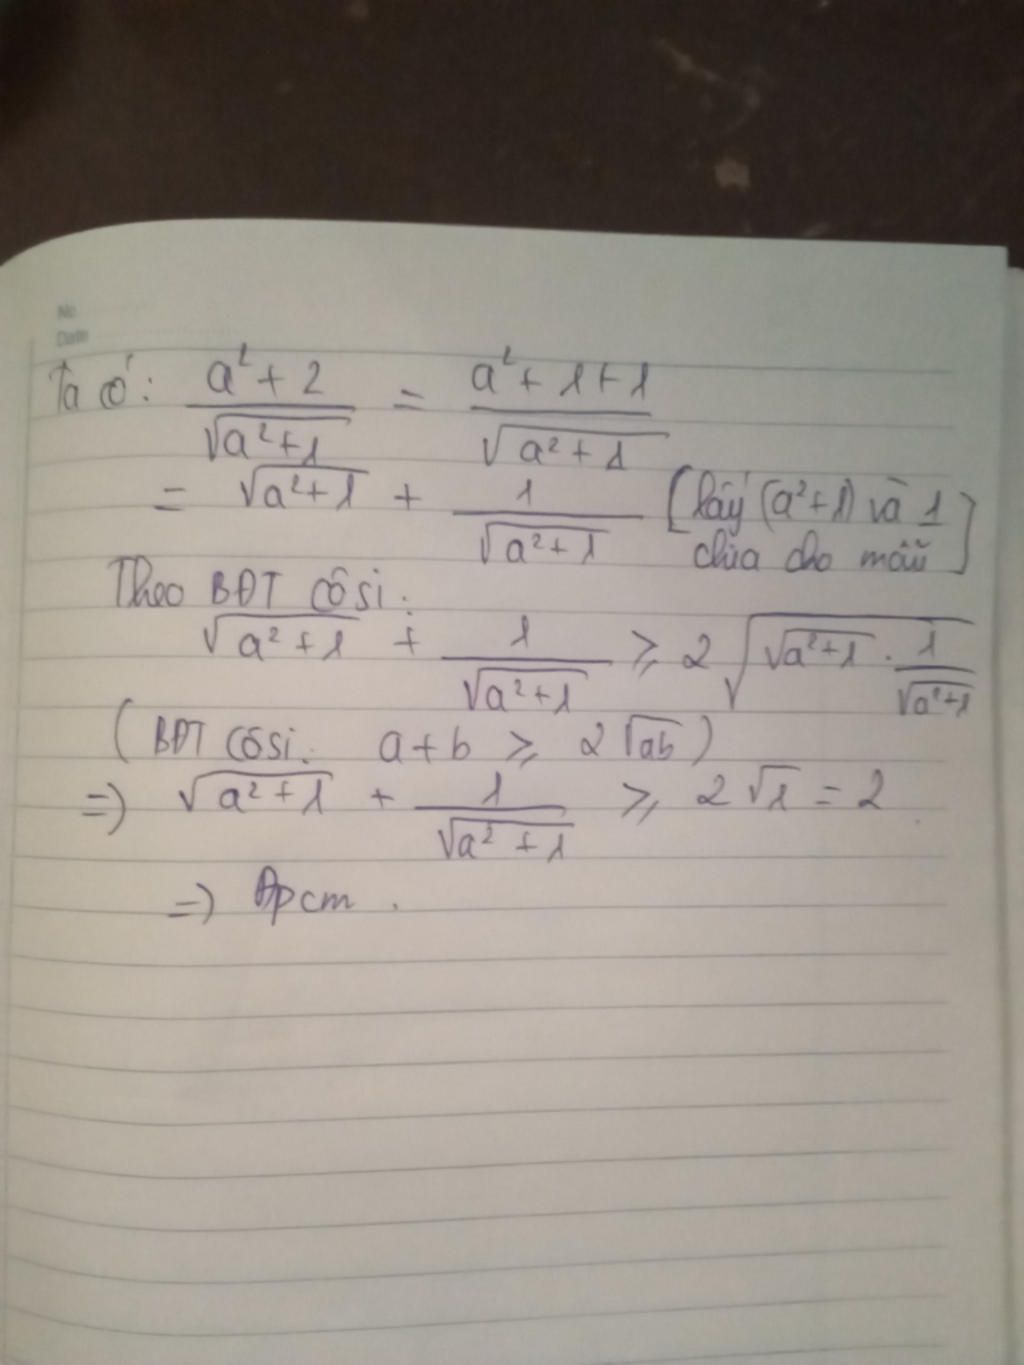 No
Date
Ta có: a²+2/√(a²+1) = a²+1+1/√(a²+1)
= √(a²+1) + 1/√(a²+1) [lấy (a²+1) và 1
chia cho mẫu]
Theo BĐT côsi:
√(a²+1) + 1/√(a²+1) ≥ 2√(√(a²+1) . 1/√(a²+1))
(BĐT côsi: a+b ≥ 2√ab)
=) √(a²+1) + 1/√(a²+1) ≥ 2√1 = 2
=) Đpcm.